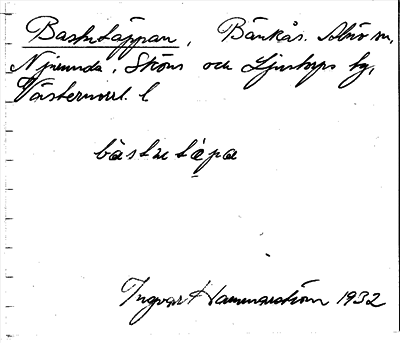 Bastutäppan, Bänkås. Alnö sn,
Njurunda, Sköns och Ljustorps tg,
Västernorrl. l
bàstutæ̣pa
Ingvar Hammarström 1932